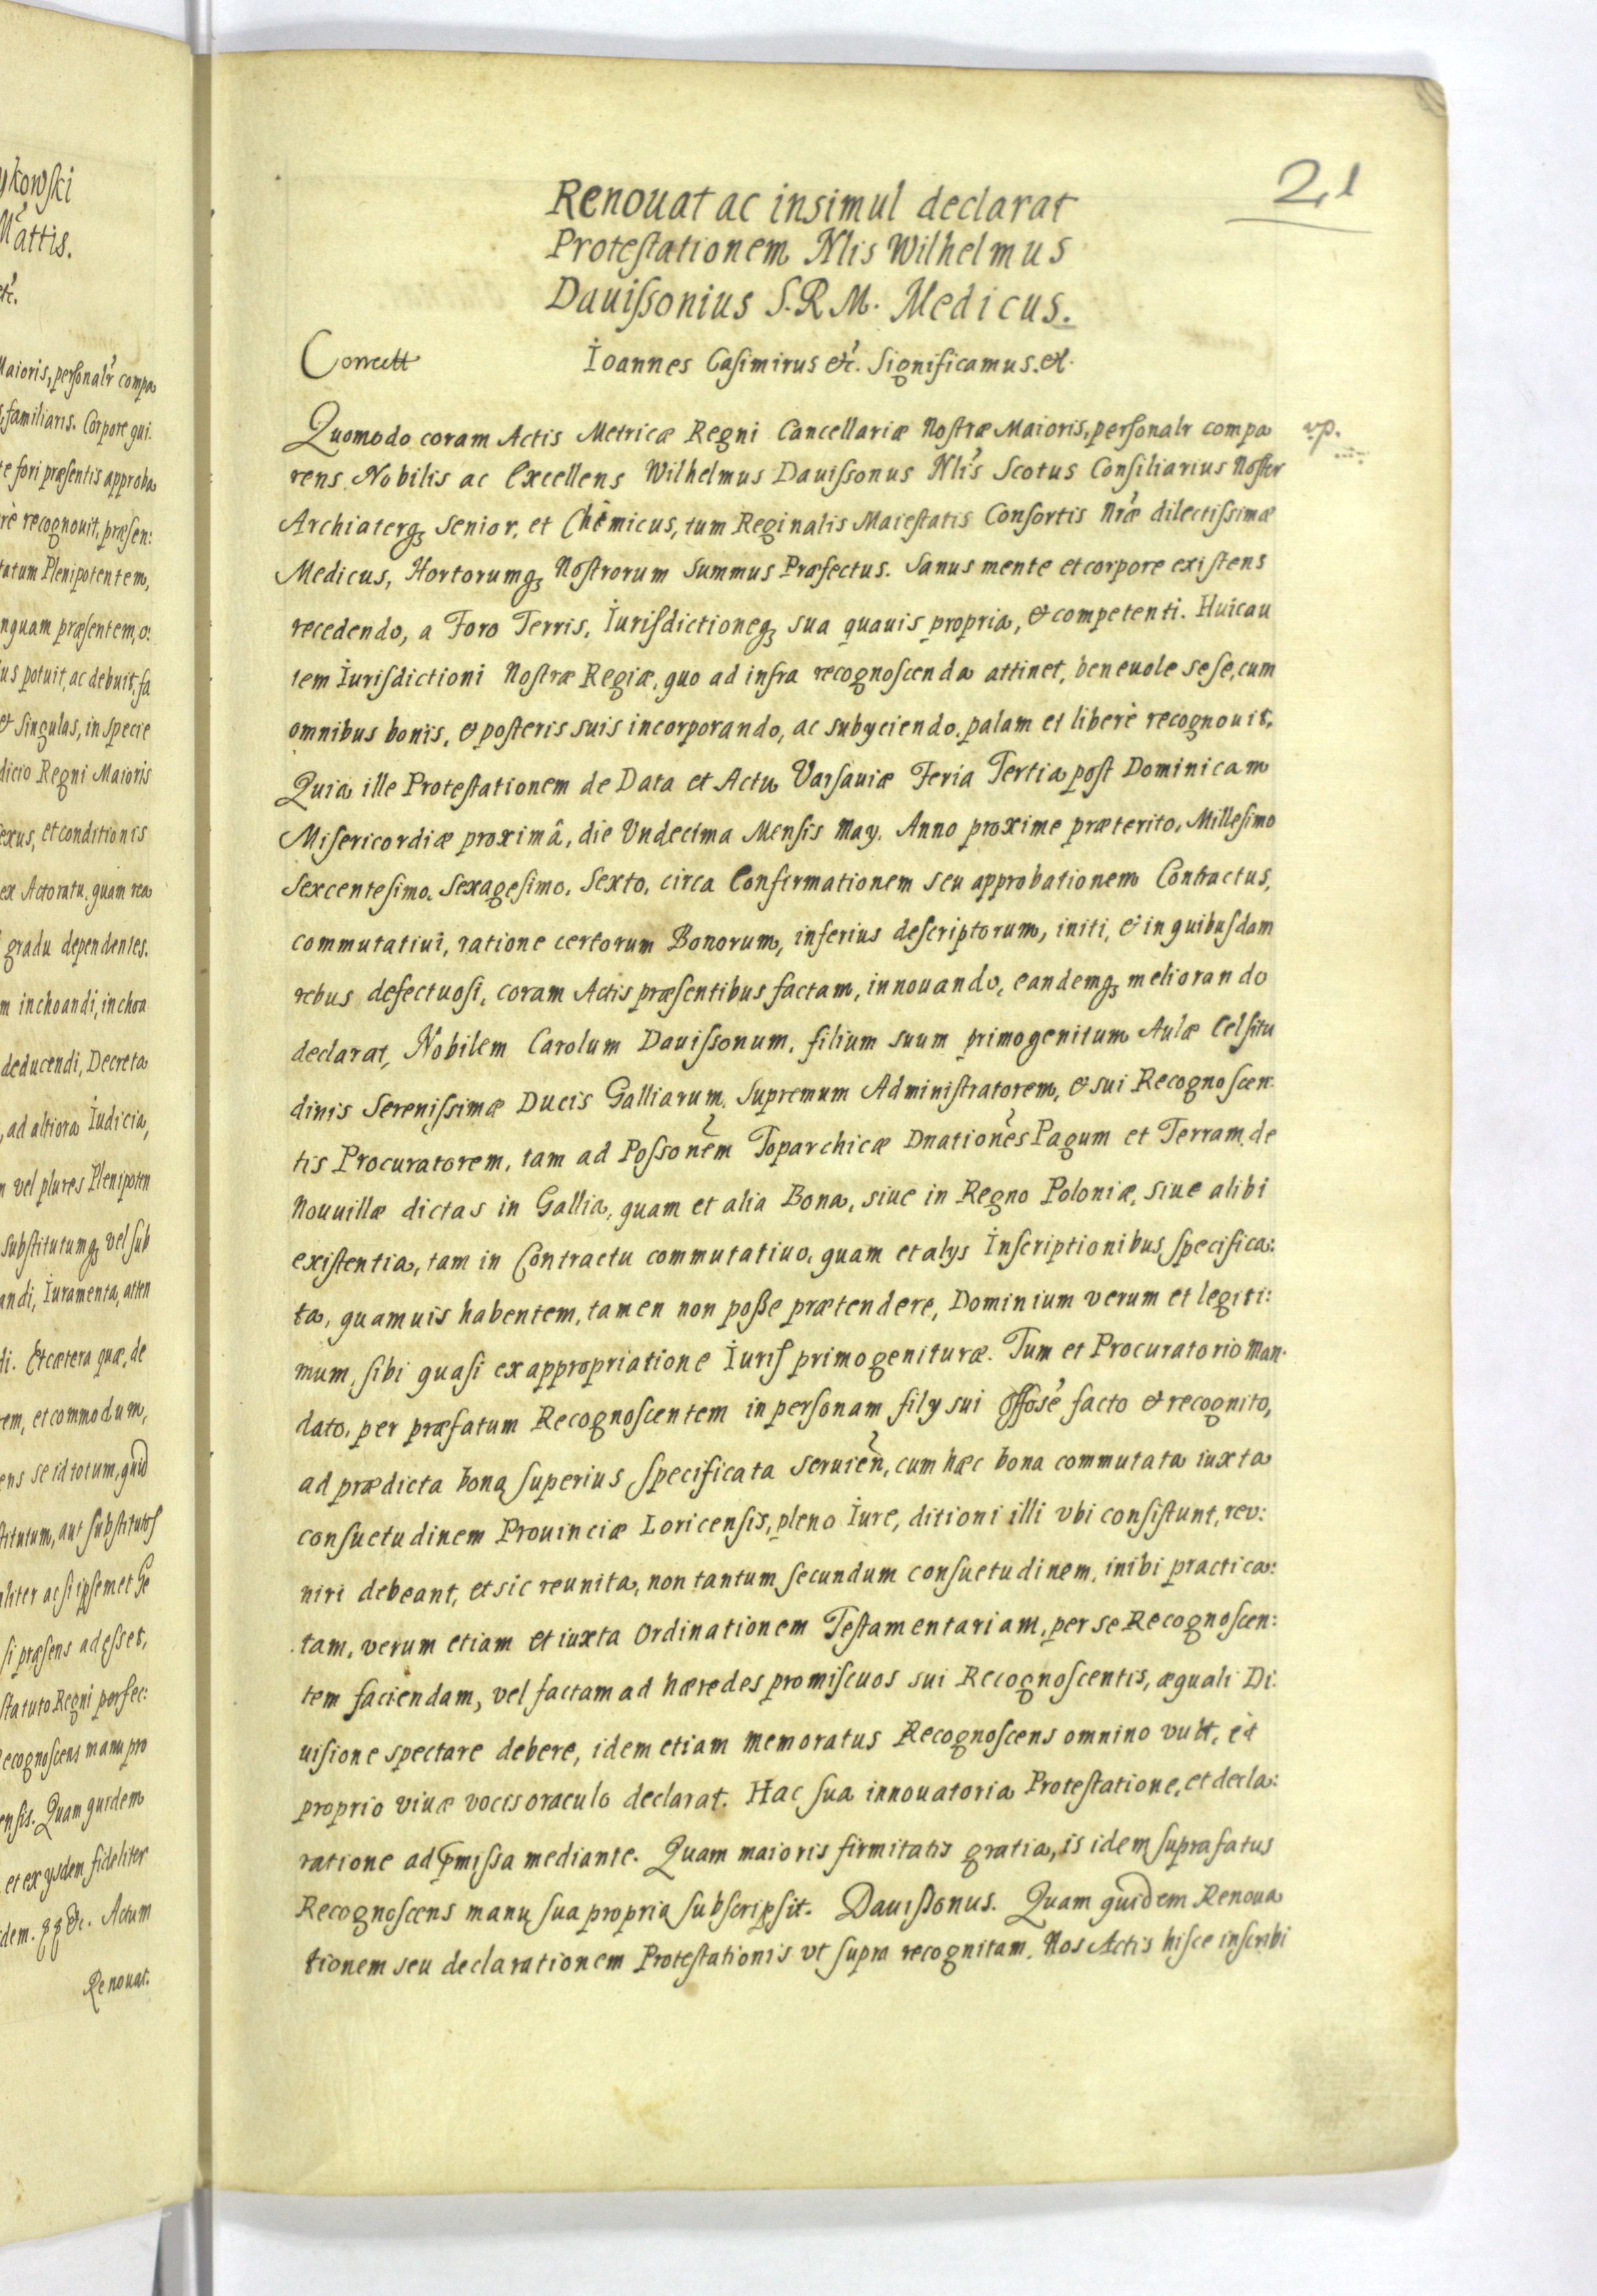 ykowſki
Mattis.
etc.
Maioris, perſonalr compa
familiaris. Corpore qui.
te fori præſentis approba
rè recognouit, præſen:
tatum Plenipotentem,
nquam præſentem, o:
us potuit, ac debuit, fa
et ſingulas, in specie
dicio Regni Maioris
exus, et conditionis
ex Actoratu, quam rea
gradu dependentes.
m inchoandi, inchoa
deducendi, Decreta
, ad altiora Iudicia,
n vel plures Plenipoten
substitutumq, vel ſub
andi, Iuramenta, atten
di. Etcætera quæ, de
rem, et commodum,
ens se id totum, quid
ſtitutum, aut ſubſtitutoſ
aliter ac ſi ipſemet ſe
ſi præſens adeſſet,
ſtatuto Regni perfec:
Recognoſcens manu pro
enſis. Quam quidem
et ex ysdem fideliter
idem. qq etc. Actum
Renouat.
21
Renouat ac insimul declarat
Proteſtationem Nlis Wilhelmus
Dauiſſonius S.R.M. Medicus.
Correctt
Ioannes Caſimirus etc. Significamus. et.
Quomodo coram Actis Metricæ Regni Cancellariæ Noſtræ Maioris, perſonalr compa
vp.
rens Nobilis ac Excellens Wilhelmus Dauiſſonus Nlis Scotus Conſiliarius Noſter
Archiaterq, Senior, et Chẽmicus, tum Reginalis Maieſtatis Conſortis Nræ dilectiſſimæ
Medicus, Hortorumq, Noſtrorum Summus Præfectus. Sanus mente et corpore exiſtens
recedendo, a Foro Terris, Iuriſdictioneq, sua quauis propria, et competenti. Huicau
tem Iuriſdictioni Noſtræ Regiæ, quo ad infra recognoſcenda attinet, beneuole seſe, cum
omnibus bonis, et poſteris suis incorporando, ac subyciendo, palam et liberè recognouit,
Quia ille Proteſtationem de Data et Actu Varſauiæ Feria Tertia poſt Dominicam
Miſericordiæ proximâ, die Vndecima Menſis May. Anno proxime præterito, Milleſimo
Sexcenteſimo. Sexageſimo. Sexto, circa Confirmationem seu approbationem Contractus,
commutatiui, ratione certorum Bonorum, inferius deſcriptorum, initi, et in quibuſdam
rebus defectuoſi, coram Actis præſentibus factam, innouando, eandemq, meliorando
declarat, Nobilem Carolum Dauiſſonum, filium suum primogenitum Aulæ Celſitu
dinis Sereniſſimæ Ducis Galliarum, Supremum Adminiſtratorem, et sui Recognoſcen:
tis Procuratorem, tam ad Poſſonem Toparchicæ Dnationes Pagum et Terram de
Nouuillæ dictas in Gallia, quam et alia Bona, siue in Regno Poloniæ, siue alibi
exiſtentia, tam in Contractu commutatiuo, quam et alys Inſcriptionibus ſpecifica:
ta, quamuis habentem, tamen non poſſe prætendere, Dominium verum et legiti:
mum, ſibi quaſi ex appropriatione Iuriſ primogenituræ. Tum et Procuratorio Man:
dato, per præfatum Recognoſcentem in perſonam fily sui offosè facto et recognito,
ad prædicta bona ſuperius ſpecificata seruien, cum hæc bona commutata iuxta
conſuetudinem Prouinciæ Loricenſis, pleno Iure, ditioni illi vbi conſiſtunt, reu:
niri debeant, et sic reunita, non tantum ſecundum conſuetudinem, inibi practica:
tam, verum etiam et iuxta Ordinationem Teſtamentariam, per se Recognoſcen:
tem faciendam, vel factam ad hæredes promiſcuos sui Recognoſcentis, æquali Di:
uiſione spectare debere, idem etiam memoratus Recognoſcens omnino vult, et
proprio viuæ vocis oraculo declarat. Hac ſua innouatoria Proteſtatione, et decla:
ratione ad pmiſſa mediante. Quam maioris firmitatis gratia, is idem ſuprafatus
Recognoſcens manu ſua propria ſubſcripſit. Dauiſſonus. Quam quidem Renoua
tionem seu declarationem Proteſtationis vt ſupra recognitam, Nos Actis hiſce inſcribi